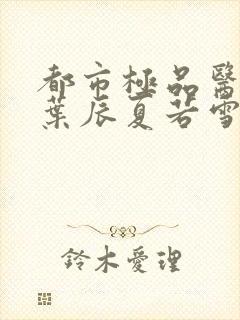 都市極品醫
葉辰夏若雪
鈴木愛理